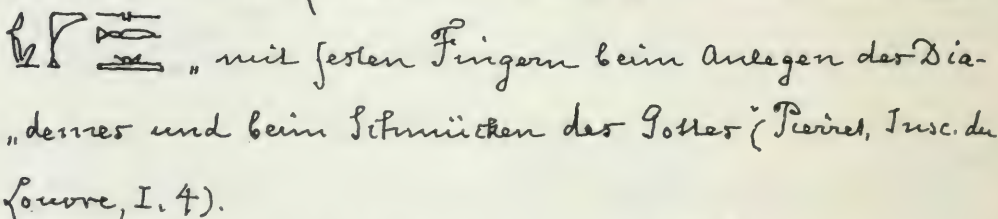 „mit festen Fingern beim Anlegen des Dia-
„demes und beim Schmücken des Gottes“ (Pierret, Insc. du
Louvre, I, 4).